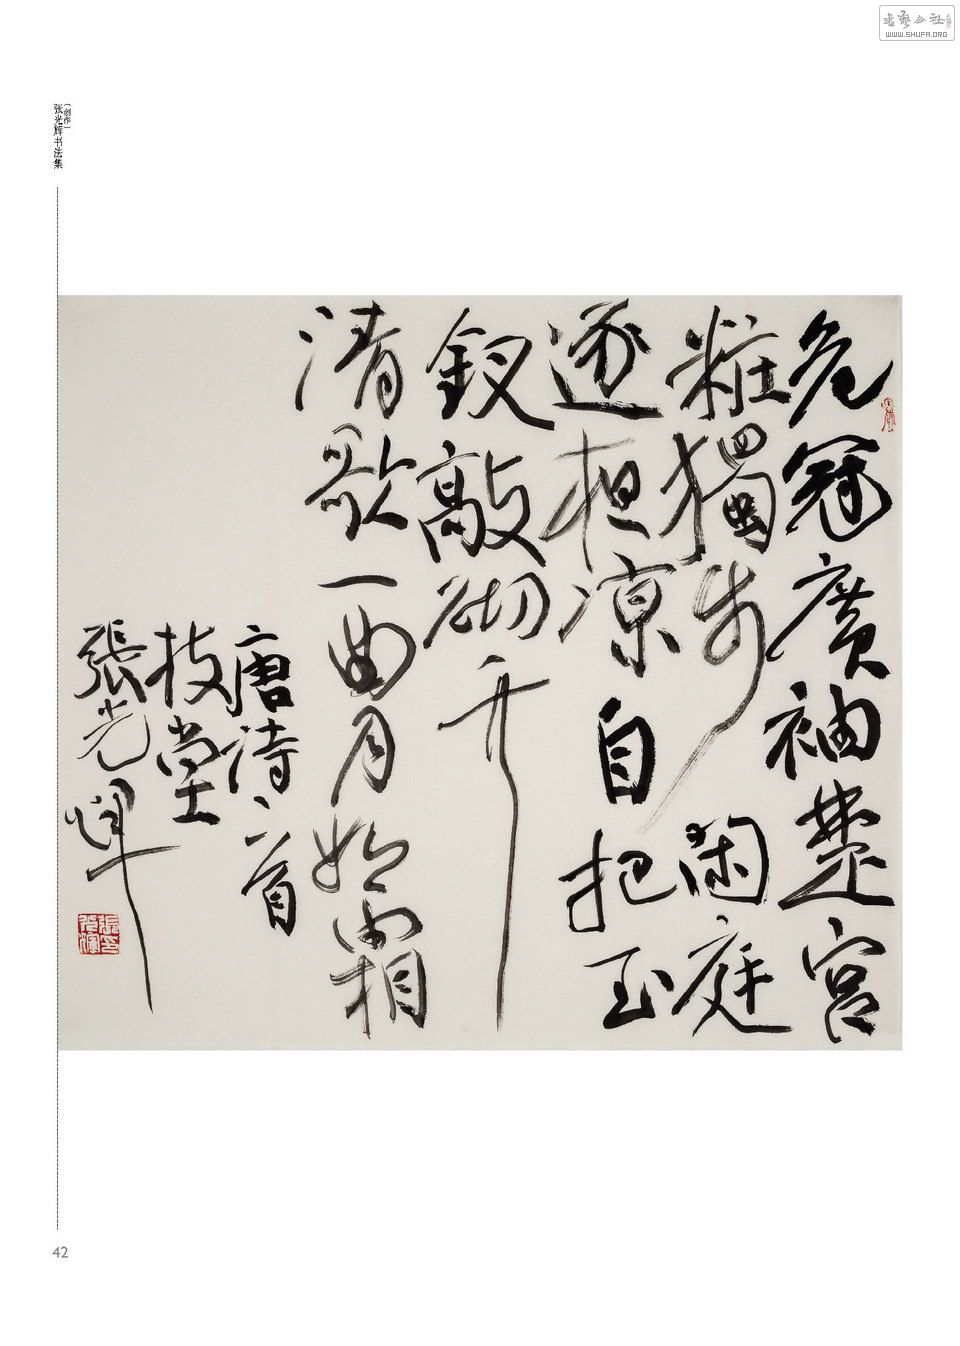 书艺公社
WWW.SHUFA.ORG
张光辉书法集
（创作）
危冠廣袖楚宮
粧獨步閑庭
逐涼自把玉
釵敲砌竹
清歌一曲月如霜
唐詩一首
技堂
張光輝
42